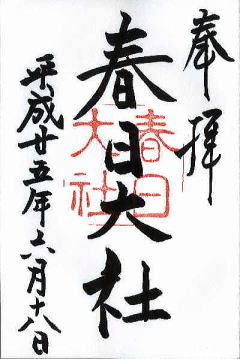 奉拝
春日大社
春日
大社
平成廿五年六月十八日